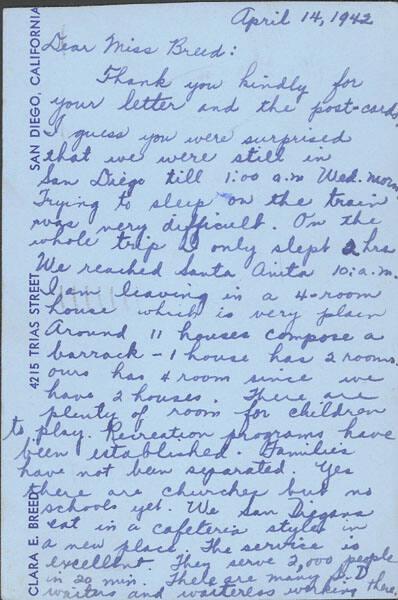 April 14, 1942
Dear Miss Breed:
Thank you kindly for
your letter and the post-cards.
I guess you were surprised
that we were still in
San Diego till 1:00 a.m Wed. morn.
Trying to sleep on the train
was very difficult. On the
whole trip I only slept 2 hrs
We reached Santa Anita 10: a.m.
I am leaving in a 4-room
house which is very plain
Around 11 houses compose a
barrack - 1 house has 2 rooms.
ours has 4 room since we
have 2 houses. There are
plenty of room for children
to play. Recreation programs have
been established. Families
have not been separated. Yes
there are churches but no
schools yet. We San Diegans
eat in a cafeteria style in
a new place. The service is
excellent. They serve 2,000 people
in 20 min. There are many S.D
waiters and waitress working there.
CLARA E. BREED 4215 TRIAS STREET SAN DIEGO, CALIFORNIA